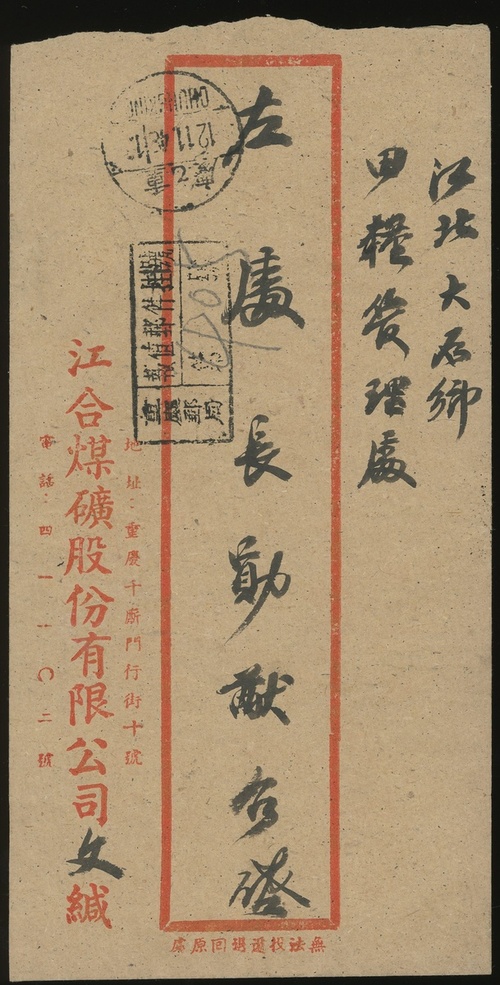 江北大石鄉
田糧管理處
左處長勛猷台啓
地址·重慶千廝門行街十號
江合煤礦股份有限公司文緘
電話·四一一〇二號
無法投遞退回原處
重慶
CHUNGKING
重慶郵局
第 號